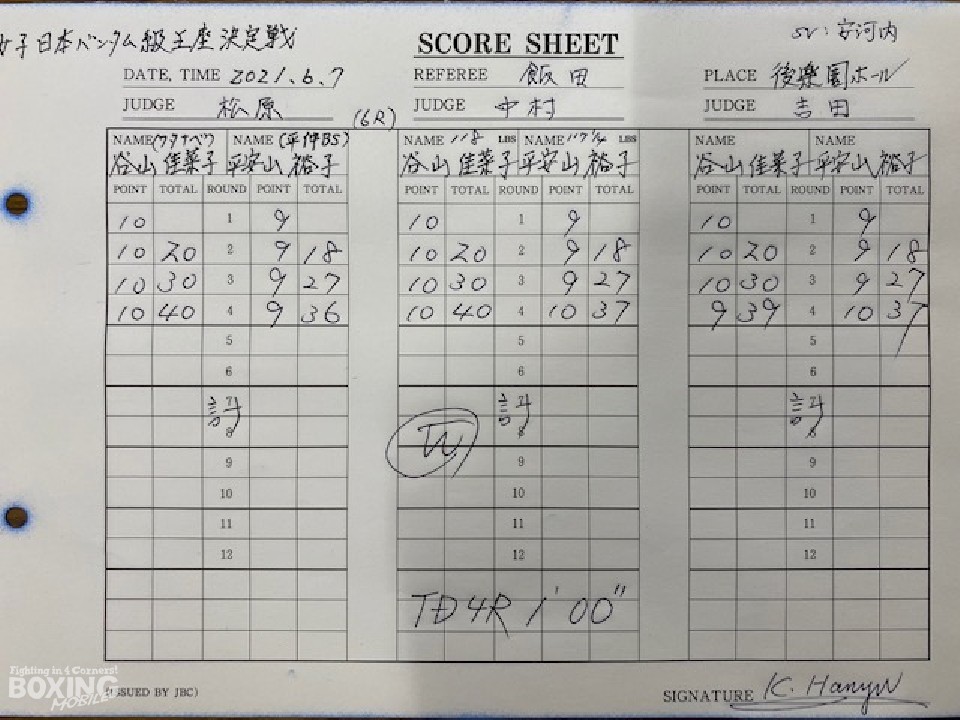 女子日本バンタム級王座決定戦
SCORE SHEET
SV:安河内
DATE, TIME 2021.6.7
REFEREE 飯田
PLACE 後楽園ホール
JUDGE 松原
(6R)
JUDGE 中村
JUDGE 吉田
NAME (ワタナベ) NAME (平仲BS)
NAME 118 LBS NAME 117 1/4 LBS
NAME NAME
谷山佳菜子 平安山裕子
谷山佳菜子 平安山裕子
谷山佳菜子 平安山裕子
POINT TOTAL ROUND POINT TOTAL
POINT TOTAL ROUND POINT TOTAL
POINT TOTAL ROUND POINT TOTAL
10 1 9
10 1 9
10 1 9
10 20 2 9 18
10 20 2 9 18
10 20 2 9 18
10 30 3 9 27
10 30 3 9 27
10 30 3 9 27
10 40 4 9 36
10 40 4 10 37
9 39 4 10 37
5 5 5
6 6 6
計 計 計
8 8 8
W
9 9 9
10 10 10
11 11 11
12 12 12
TD 4R 1'00"
Fighting in 4 Corners!
BOXING
MOBILE
(ISSUED BY JBC)
SIGNATURE K. Hanyu